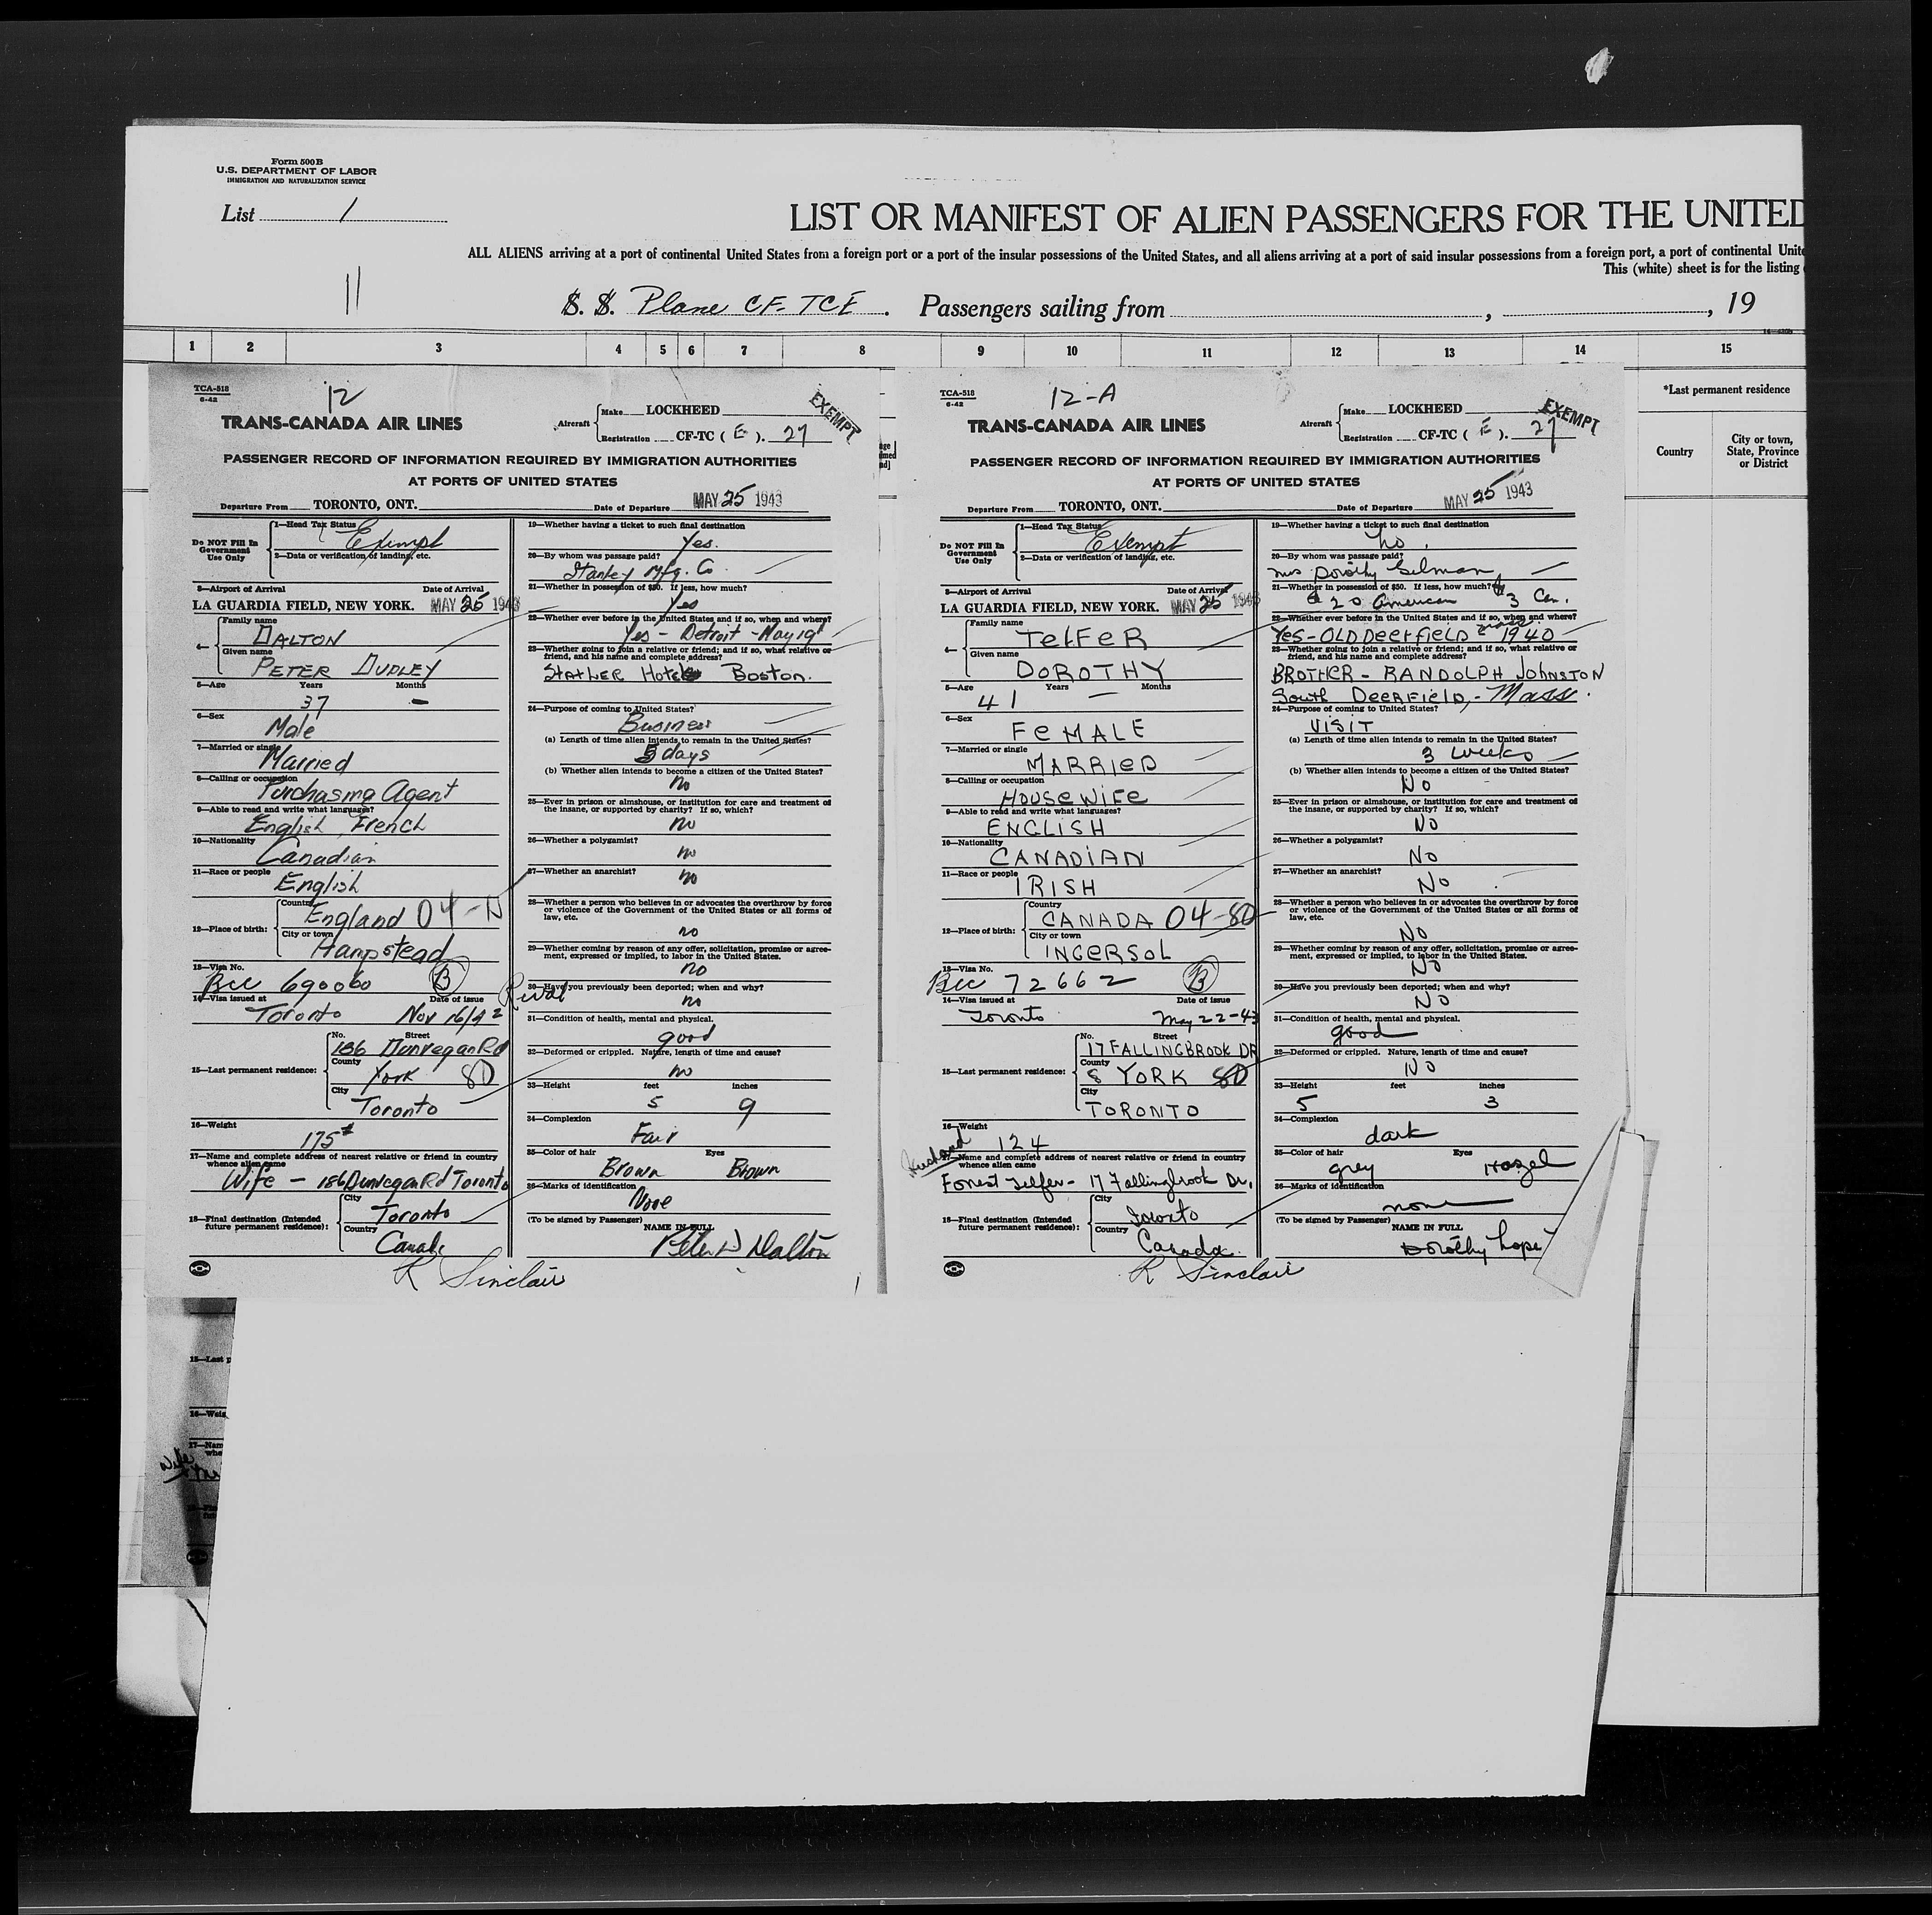 Form 500B
U.S. DEPARTMENT OF LABOR
IMMIGRATION AND NATURALIZATION SERVICE
List 1
LIST OR MANIFEST OF ALIEN PASSENGERS FOR THE UNITED
ALL ALIENS arriving at a port of continental United States from a foreign port or a port of the insular possessions of the United States, and all aliens arriving at a port of said insular possessions from a foreign port, a port of continental Unite
This (white) sheet is for the listing
11
S. S. Plane CF-TCE. Passengers sailing from , , 19
1 2 3 4 5 6 7 8 9 10 11 12 13 14 15
*Last permanent residence
Country
City or town, State, Province or District
TCA-518
6-42
12
TRANS-CANADA AIR LINES
Aircraft
Make LOCKHEED
Registration CF-TC ( E ). 27
EXEMPT
PASSENGER RECORD OF INFORMATION REQUIRED BY IMMIGRATION AUTHORITIES
AT PORTS OF UNITED STATES
Departure From TORONTO, ONT. Date of Departure MAY 25 1943
Do NOT Fill In Government Use Only
1—Head Tax Status Exempt
2—Data or verification of landing, etc.
3—Airport of Arrival Date of Arrival
LA GUARDIA FIELD, NEW YORK. MAY 25 1943
4— Family name
DALTON
Given name
PETER DUDLEY
5—Age Years Months
37 —
6—Sex
Male
7—Married or single
Married
8—Calling or occupation
Purchasing Agent
9—Able to read and write what languages?
English, French
10—Nationality
Canadian
11—Race or people
English
12—Place of birth:
Country
England 04-N
City or town
Hampstead
13—Visa No.
Bcc 690060 B
14—Visa issued at Date of issue
Toronto Nov 16/42
15—Last permanent residence:
No. Street
186 Dunvegan Rd
County
York 80
City
Toronto
16—Weight
175#
17—Name and complete address of nearest relative or friend in country whence alien came
Wife - 186 Dunvegan Rd Toronto
18—Final destination (Intended future permanent residence):
City
Toronto
Country
Canada
R Sinclair
19—Whether having a ticket to such final destination
Yes.
20—By whom was passage paid?
Stanley Mfg. Co
21—Whether in possession of $50. If less, how much?
Yes
22—Whether ever before in the United States and if so, when and where?
Yes - Detroit - May 19
23—Whether going to join a relative or friend; and if so, what relative or friend, and his name and complete address?
STATLER Hotel Boston.
24—Purpose of coming to United States?
Business
(a) Length of time alien intends to remain in the United States?
5 days
(b) Whether alien intends to become a citizen of the United States?
no
25—Ever in prison or almshouse, or institution for care and treatment of the insane, or supported by charity? If so, which?
no
26—Whether a polygamist?
no
27—Whether an anarchist?
no
28—Whether a person who believes in or advocates the overthrow by force or violence of the Government of the United States or all forms of law, etc.
no
29—Whether coming by reason of any offer, solicitation, promise or agreement, expressed or implied, to labor in the United States.
no
30—Have you previously been deported; when and why?
no
31—Condition of health, mental and physical.
good
32—Deformed or crippled. Nature, length of time and cause?
no
33—Height feet inches
5 9
34—Complexion
Fair
35—Color of hair Eyes
Brown Brown
36—Marks of identification
None
(To be signed by Passenger)
NAME IN FULL
Peter D Dalton
TCA-518
6-42
12-A
TRANS-CANADA AIR LINES
Aircraft
Make LOCKHEED
Registration CF-TC ( E ). 27
EXEMPT
PASSENGER RECORD OF INFORMATION REQUIRED BY IMMIGRATION AUTHORITIES
AT PORTS OF UNITED STATES
Departure From TORONTO, ONT. Date of Departure MAY 25 1943
Do NOT Fill In Government Use Only
1—Head Tax Status
Exempt
2—Data or verification of landing, etc.
3—Airport of Arrival Date of Arrival
LA GUARDIA FIELD, NEW YORK. MAY 25 1943
4— Family name
TELFER
Given name
DOROTHY
5—Age Years Months
41 —
6—Sex
FEMALE
7—Married or single
MARRIED
8—Calling or occupation
HOUSEWIFE
9—Able to read and write what languages?
ENGLISH
10—Nationality
CANADIAN
11—Race or people
IRISH
12—Place of birth:
Country
CANADA 04-80
City or town
INGERSOL
13—Visa No.
Bcc 72662 B
14—Visa issued at Date of issue
Toronto May 22-43
15—Last permanent residence:
No. Street
17 FALLINGBROOK DR
County
YORK 80
City
TORONTO
16—Weight
124
Husband
17—Name and complete address of nearest relative or friend in country whence alien came
Forrest Telfer - 17 Fallingbrook Dr.
18—Final destination (Intended future permanent residence):
City
Toronto
Country
Canada
R Sinclair
19—Whether having a ticket to such final destination
no.
20—By whom was passage paid?
Mrs Dorothy Gilman
21—Whether in possession of $50. If less, how much?
$20 American $3 Can.
22—Whether ever before in the United States and if so, when and where?
Yes - OLD DEERFIELD Mass 1940
23—Whether going to join a relative or friend; and if so, what relative or friend, and his name and complete address?
BROTHER - RANDOLPH JOHNSTON
South DEERFIELD, - Mass.
24—Purpose of coming to United States?
VISIT
(a) Length of time alien intends to remain in the United States?
3 weeks
(b) Whether alien intends to become a citizen of the United States?
NO
25—Ever in prison or almshouse, or institution for care and treatment of the insane, or supported by charity? If so, which?
NO
26—Whether a polygamist?
No
27—Whether an anarchist?
No
28—Whether a person who believes in or advocates the overthrow by force or violence of the Government of the United States or all forms of law, etc.
No
29—Whether coming by reason of any offer, solicitation, promise or agreement, expressed or implied, to labor in the United States.
No
30—Have you previously been deported; when and why?
No
31—Condition of health, mental and physical.
good
32—Deformed or crippled. Nature, length of time and cause?
No
33—Height feet inches
5 3
34—Complexion
dark
35—Color of hair Eyes
grey Hazel
36—Marks of identification
none
(To be signed by Passenger)
NAME IN FULL
Dorothy